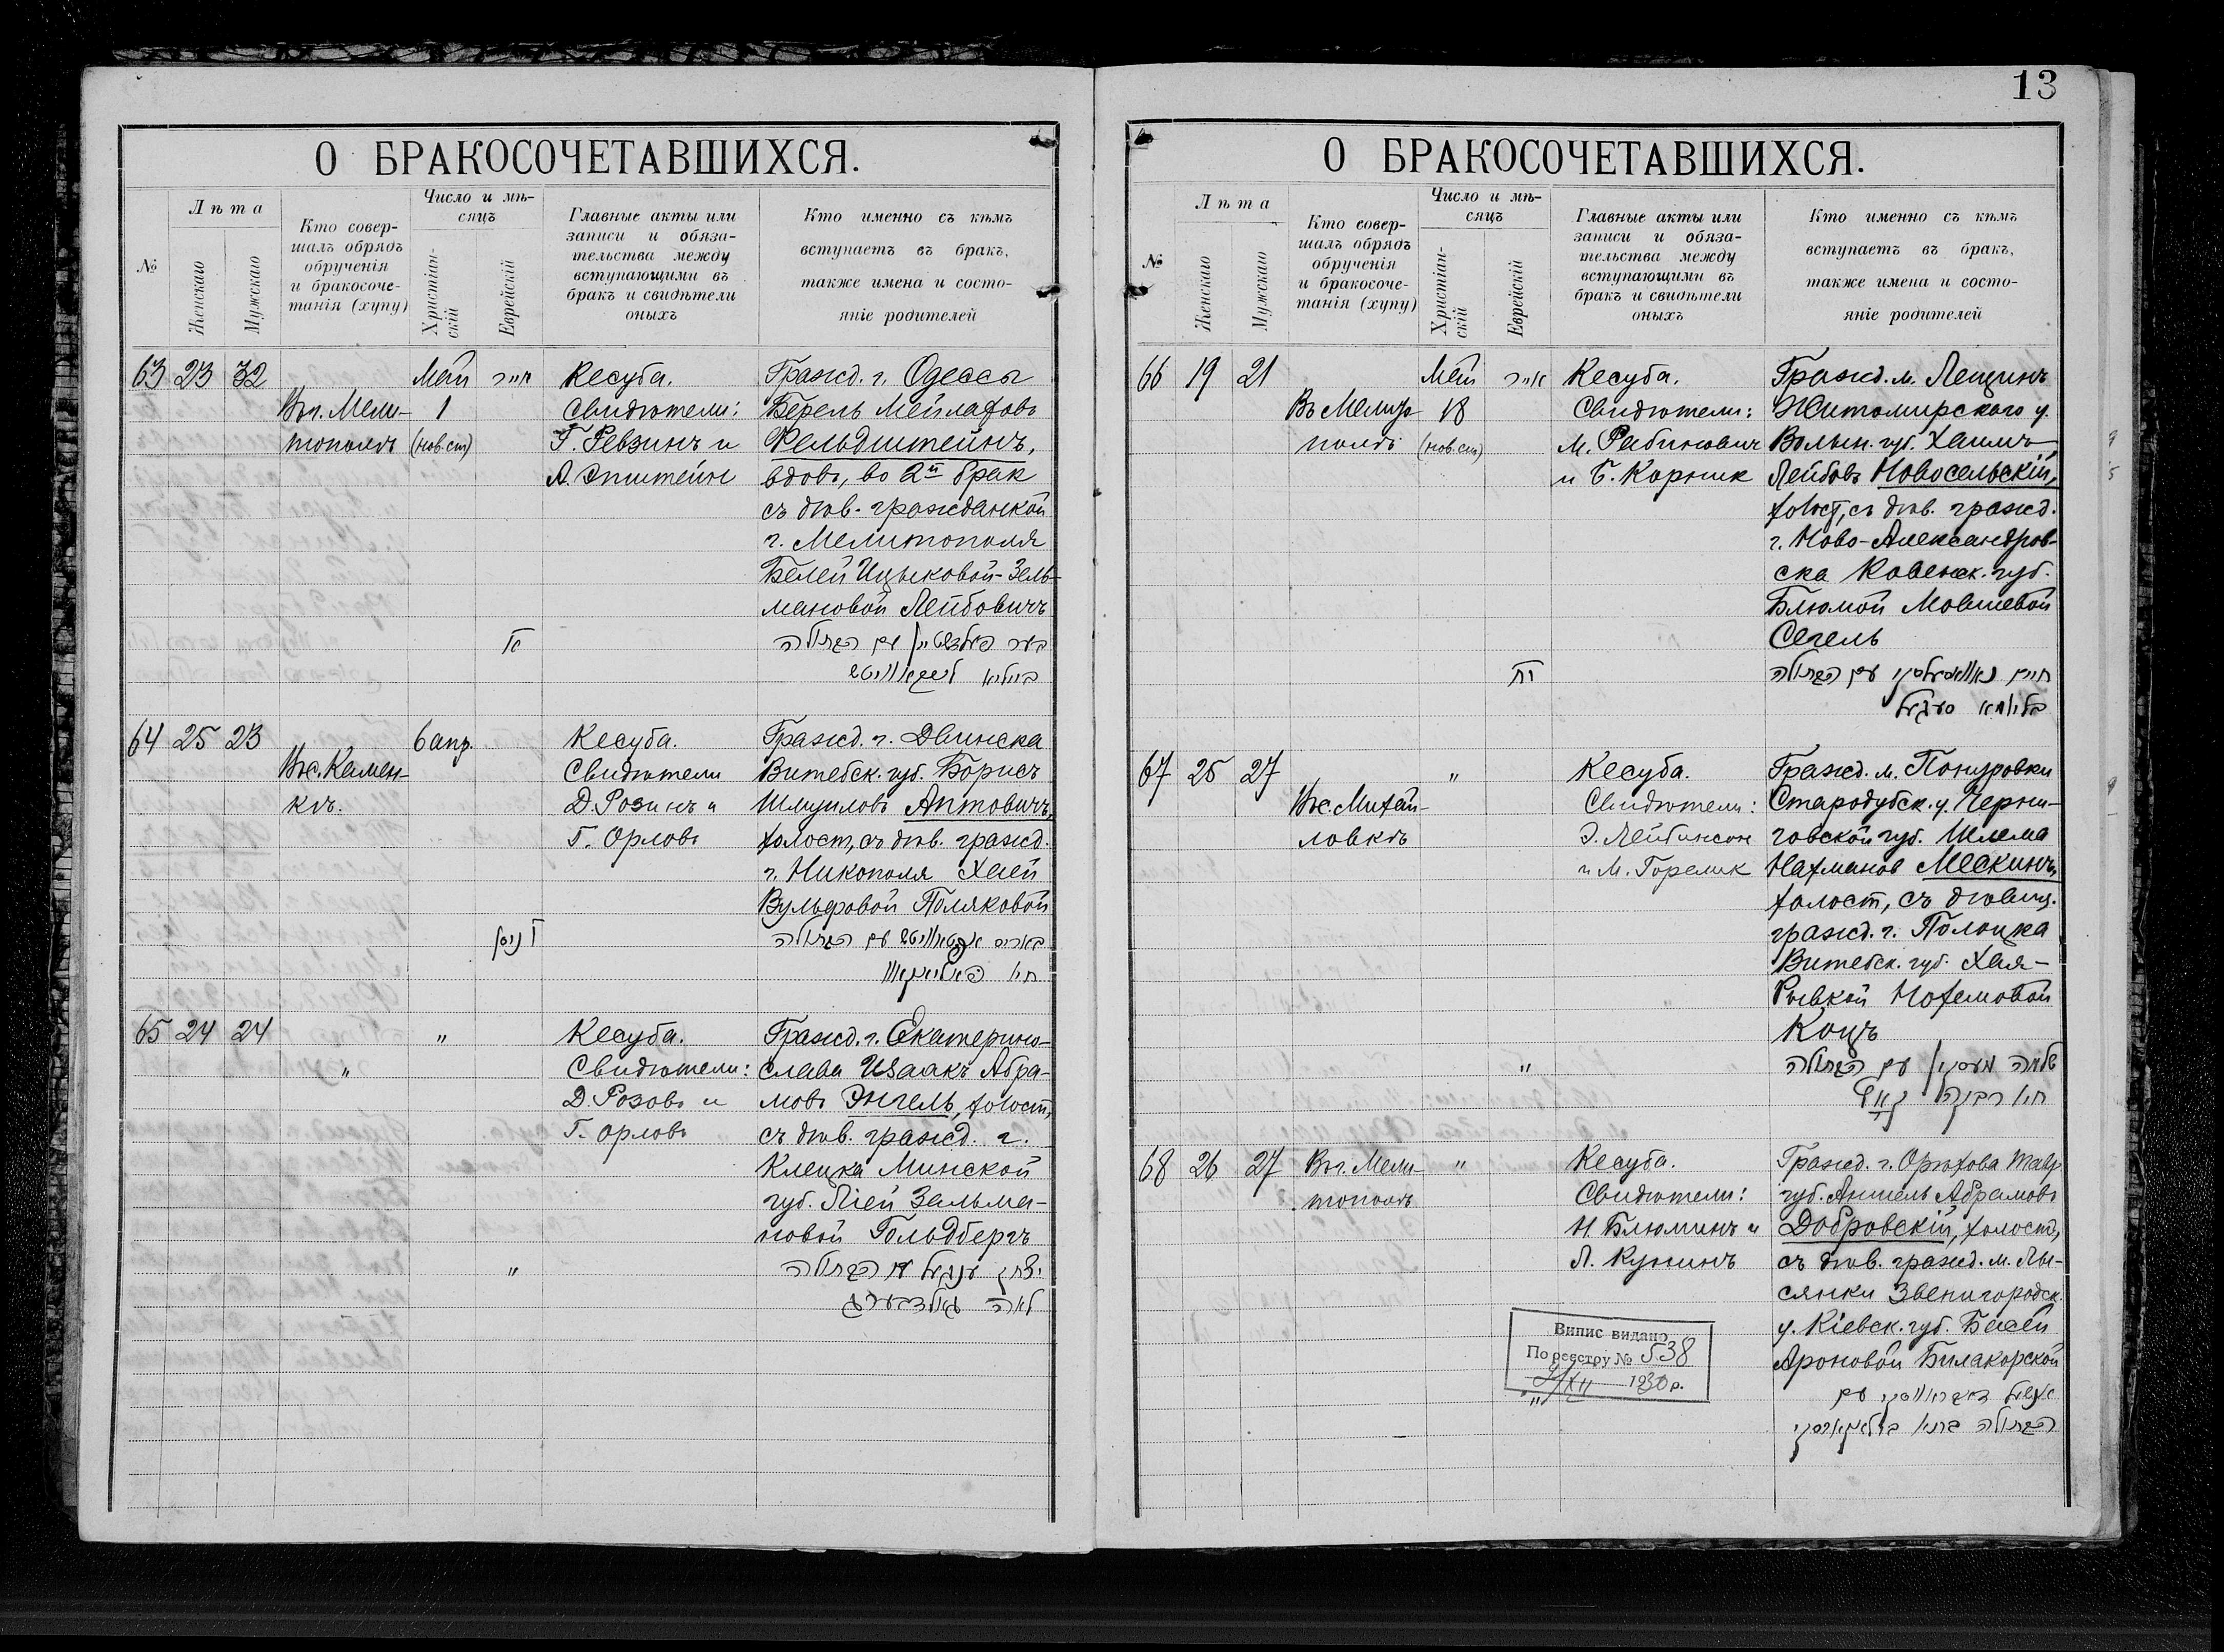 13
О БРАКОСОЧЕТАВШИХСЯ.
№
Лѣта
Женскаго
Мужскаго
Кто совер-
шалъ обрядъ
обрученія
и бракосоче-
танія (хупу)
Число и мѣ-
сяцъ
Христіан-
скій
Еврейскій
Главные акты или
записи и обяза-
тельства между
вступающими въ
бракъ и свидѣтели
оныхъ
Кто именно съ кѣмъ
вступаетъ въ бракъ,
также имена и состо-
яніе родителей
63 23 32
Въ г. Мели-
тополѣ
Май
1
(нов. ст)
אייר
Кесуба.
Свидѣтели:
Г. Ревзинъ и
А. Эпштейн
Гражд. г. Одессы
Берель Мейлаховъ
Фельдштейнъ,
вдовъ, во 2й брак
съ дѣв. гражданкой
г. Мелитополя
Белей Ицыковой-Зель-
мановой Лейбовичъ
בער פעלדשטיין עם הבתולה
ביילא לייבאוויטש
64 25 23
Въ с. Камен-
кѣ.
6 апр.
ניסן
Кесуба.
Свидѣтели
Д. Розинъ и
Г. Орловъ
Гражд. г. Двинска
Витебск. губ. Борисъ
Шмуиловъ Аптовичъ,
холост, съ дѣв. гражд.
г. Никополя Хаей
Вульфовой Поляковой
באריס אפטאוויטש עם הבתולה
חיה פאליאקאוו
65 24 24
"
"
"
Кесуба.
Свидѣтели:
Д. Розовъ и
Г. Орловъ
Гражд. г. Екатерино-
слава Изаакъ Абра-
мовъ Энгель, холост,
съ дѣв. гражд. г.
Клецка Минской
губ. Ліей Зальма-
новой Гольдбергъ
יצחק ענגעל עם הבתולה
לאה גאלדבערג
О БРАКОСОЧЕТАВШИХСЯ.
№
Лѣта
Женскаго
Мужскаго
Кто совер-
шалъ обрядъ
обрученія
и бракосоче-
танія (хупу)
Число и мѣ-
сяцъ
Христіан-
скій
Еврейскій
Главные акты или
записи и обяза-
тельства между
вступающими въ
бракъ и свидѣтели
оныхъ
Кто именно съ кѣмъ
вступаетъ въ бракъ,
также имена и состо-
яніе родителей
66 19 21
Въ Мелито
полѣ
Май
18
(нов. ст)
אייר
Кесуба.
Свидѣтели:
М. Рабинович
и Б. Корник
Гражд. м. Лещинъ
Житомирскаго у.
Волын. губ. Хаимъ
Лейбовъ Новосельскій,
холост, съ дѣв. гражд.
г. Ново-Александров-
ска Ковенск. губ.
Блюмой Мовшевой
Сегель
חיים נאוואסעלסקי עם הבתולה
בלומא סעגעל
67 25 27
Въ с. Михай-
ловкѣ
"
"
Кесуба.
Свидѣтели:
Э. Лейбинсон
и М. Горелик
Гражд. м. Понуровки
Стародубск. у. Черни-
говской губ. Шлема
Нахманов Мескинъ,
холост, съ дѣвиц.
гражд. г. Полоцка
Витебск. губ. Хая-
Рывкой Нохемовой
Коцъ
שלמה מעסקין עם הבתולה
חיה רבקה קאץ
68 26 27
Въ г. Мели-
тополѣ
"
Кесуба.
Свидѣтели:
Н. Блюминъ и
Л. Кунинъ
Гражд. г. Орѣхова Тавр.
губ. Аншель Абрамовъ
Добровскій, холост,
съ дѣв. гражд. м. Лы-
сянки Звенигородск.
у. Кіевск. губ. Басей
Ароновой Билакорской
אנשעל דאבראווסקי עם
הבתולה בתיה בילאקארסקי
Випис видано
По реєстру № 538
XII 1930 р.